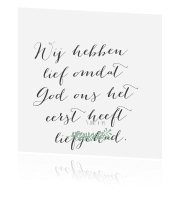 Wij hebben
lief omdat
God ons het
eerst heeft
liefgehad.